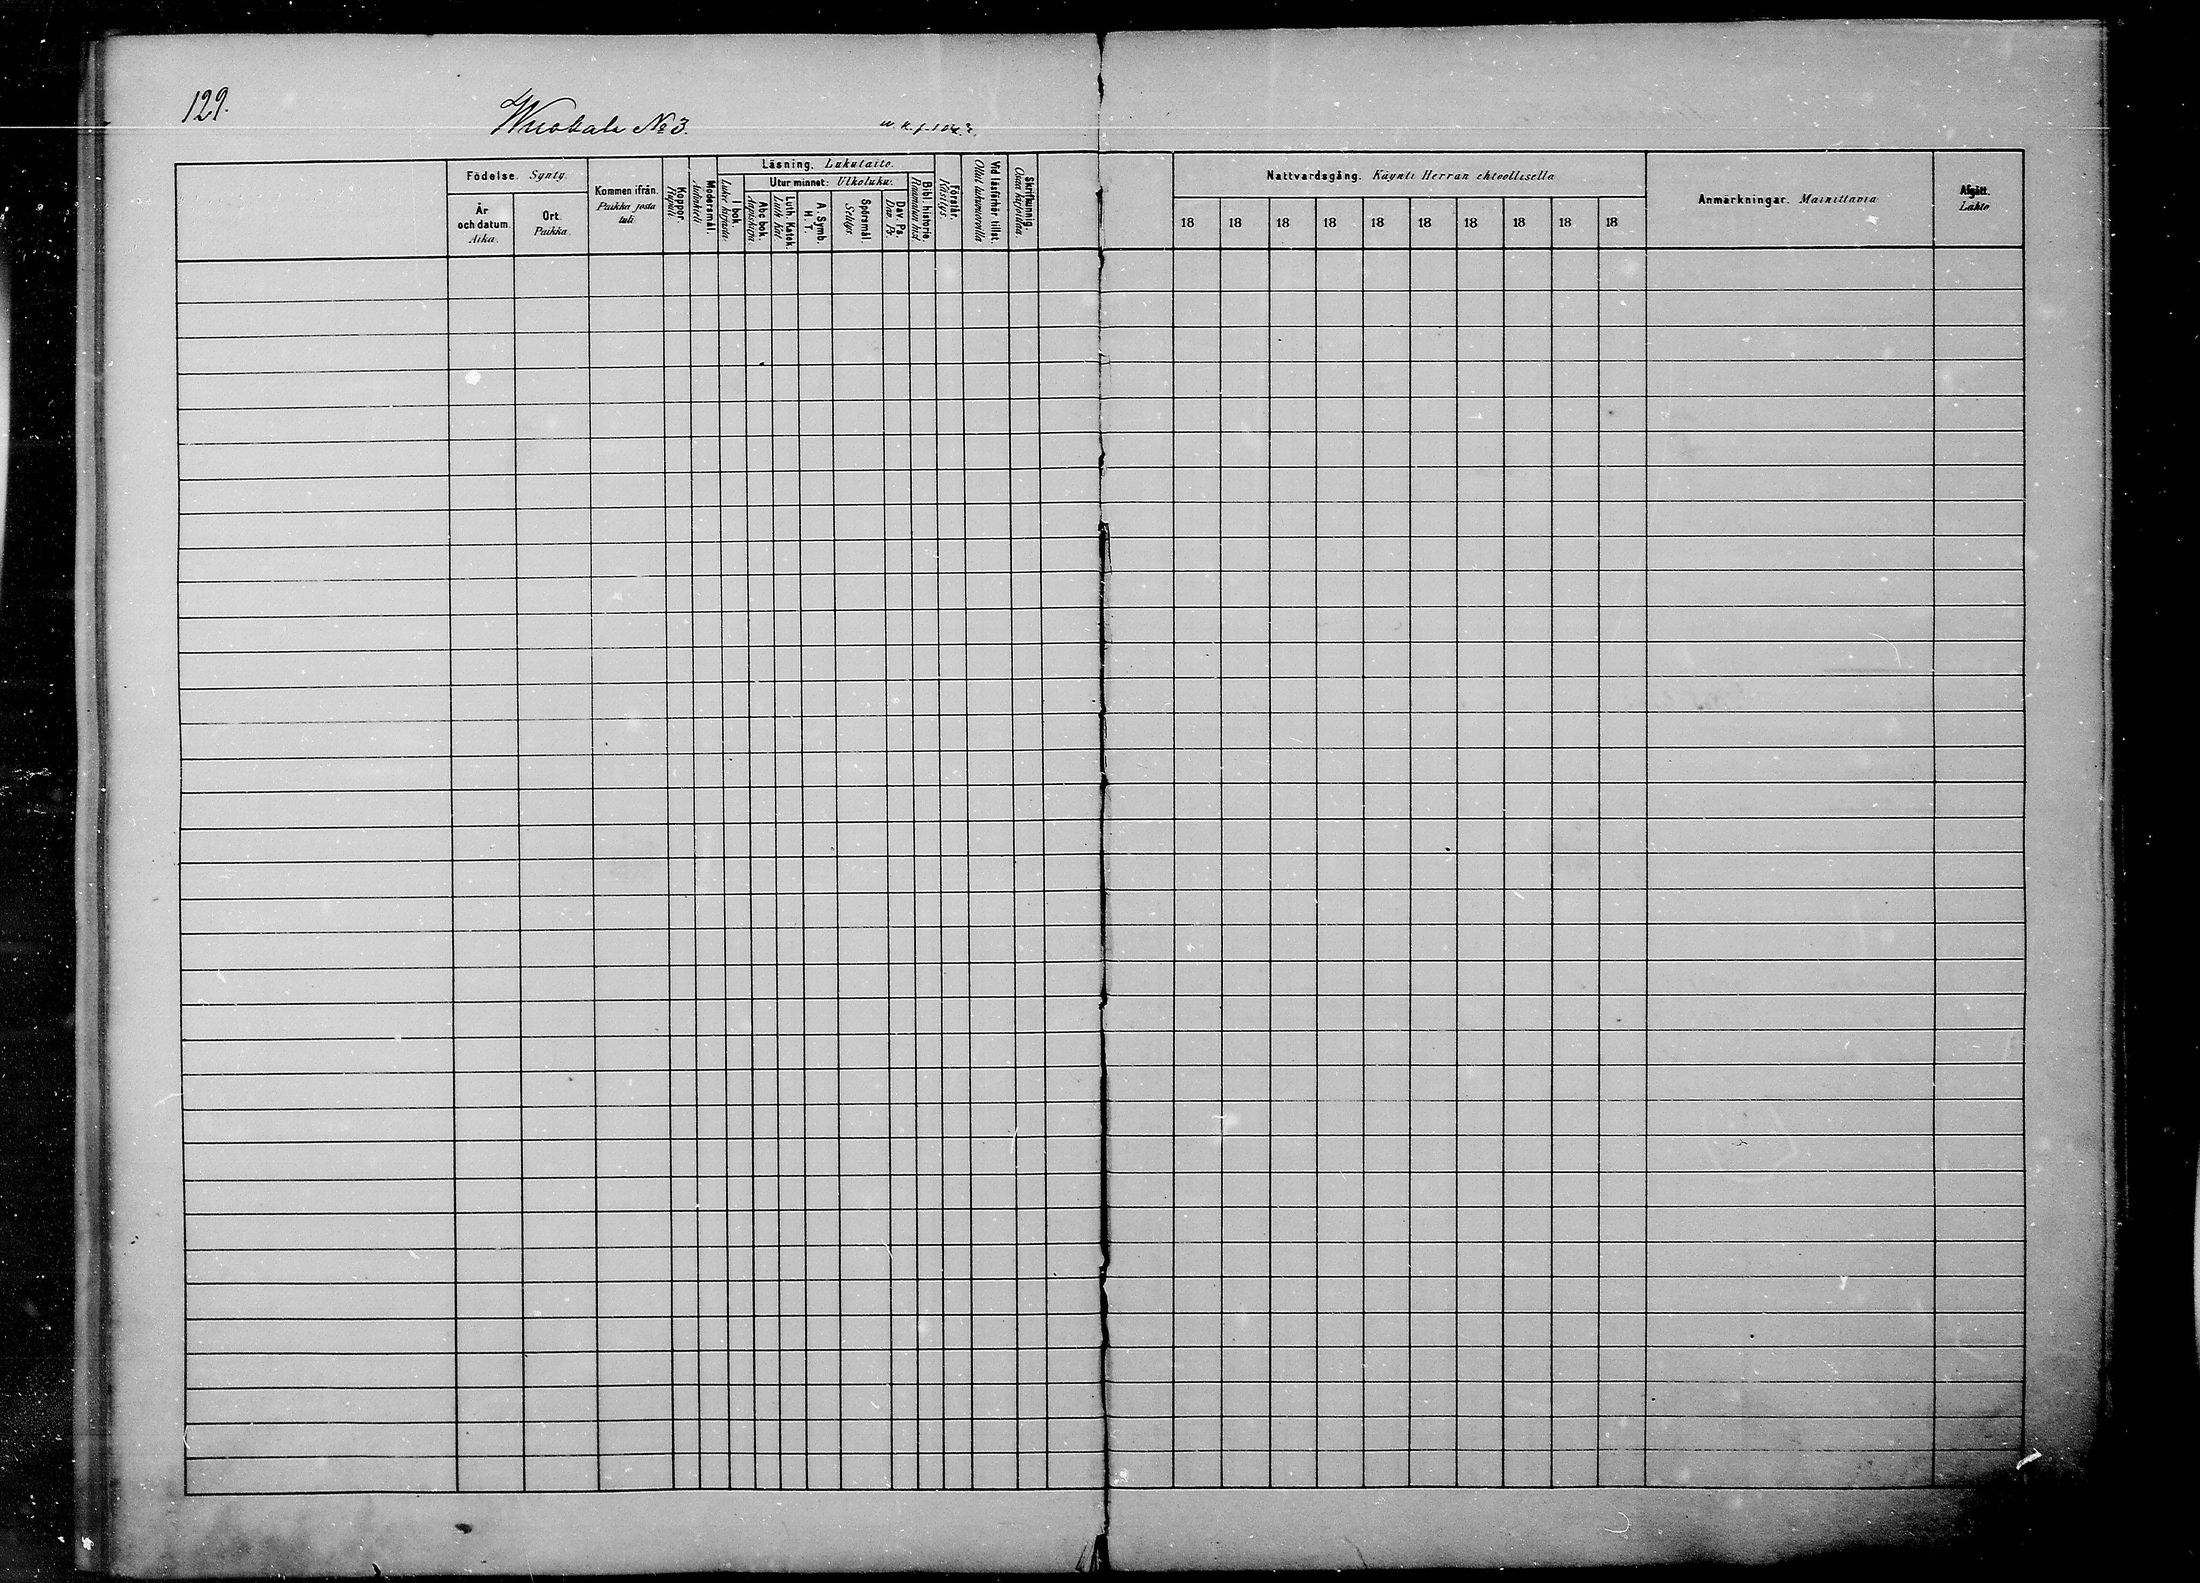 129.
Wuokala No 3.
Födelse. Synty.
År och datum. Aika.
Ort. Paikka.
Kommen ifrån. Paikka josta tuli.
Koppor. Rupuli.
Modersmål. Äidinkieli.
Läsning. Lukutaito.
I bok. Lukee kirjasta.
Utur minnet: Ulkoluku.
Abc bok. Aapiskirja.
Luth. Katek. Luth Kat.
A. Symb. H. T.
Spörsmål. Selitys.
Dav. Ps. Dav. Ps.
Bibl. historie. Raamatun hist.
Förstår. Käsitys.
Vid läsförhör tillst. Ollut lukuvuorolla
Skrifkunnig. Osaa kirjoittaa.
Nattvardsgång. Käynti Herran ehtoollisella
18 18 18 18 18 18 18 18 18 18
Anmärkningar. Mainittavia
Afgått. Lähtö